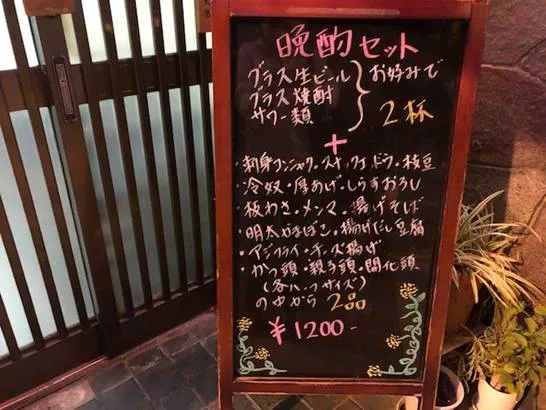 晩酌セット
グラス生ビール
グラス焼酎
サワー類
お好みで
2杯
+
・刺身コンニャク・スナックエンドウ・枝豆
・冷奴・厚あげ・しらすおろし
・板わさ・メンマ・揚げそば
・明太かまぼこ・揚げだし豆腐
・アジフライ・チーズ揚げ
・かつ頭・親子頭・開化頭
(各ハーフサイズ)
の中から 2品
¥1200-